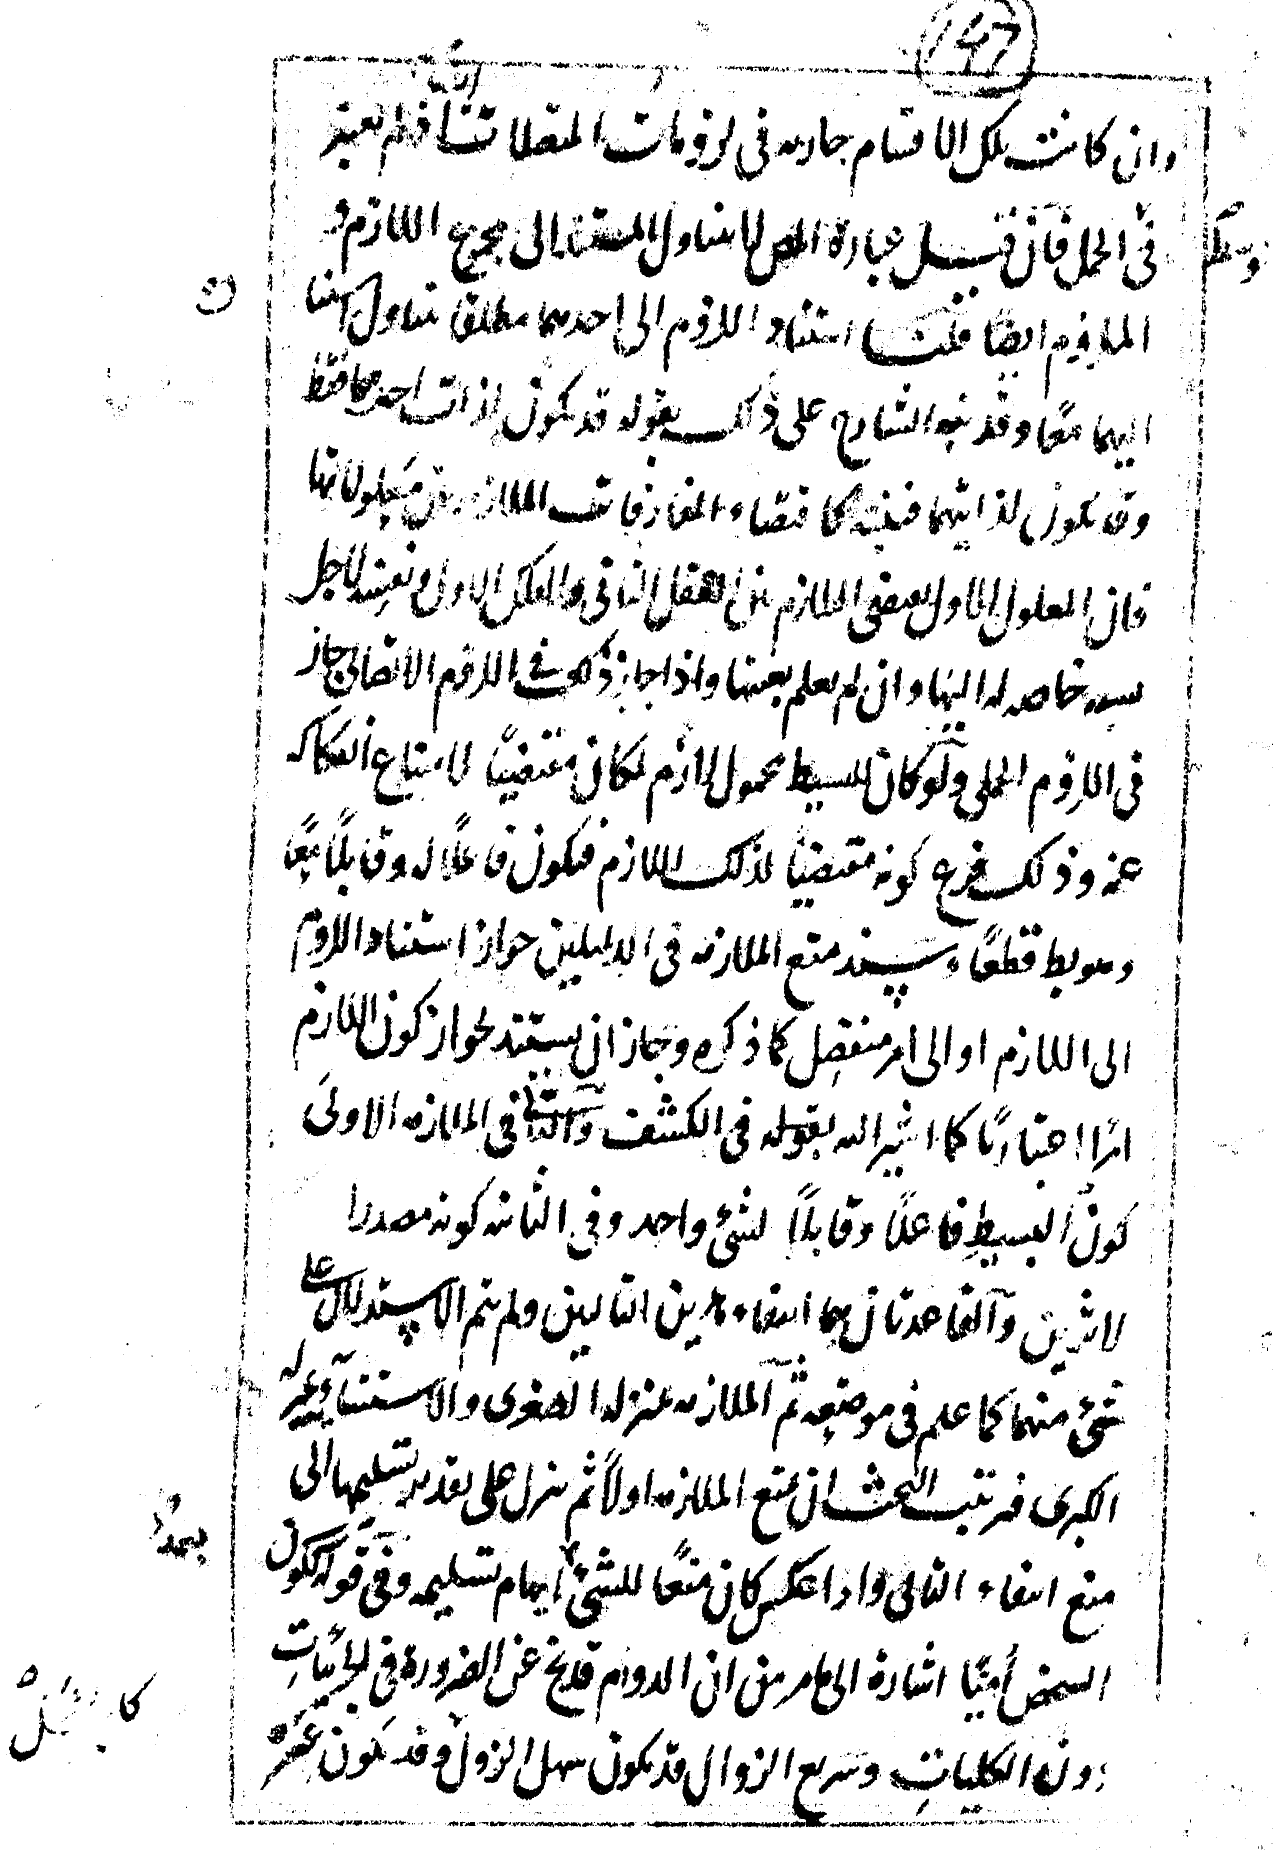 ١٤٧
وان كانت تلك الاقسام جارية في لزومات المتصلات فلم يعتبر
في الحمل فان قيل عبارة المص لا يتناول المستند الى مجموع اللازم و
الملزوم ايضا قلنا استناد اللزوم الى احدهما مطلقا يتناول استناد
اليهما معًا وقد نبه الشارح على ذلك بقوله قد يكون لذات احدهما فقط
وقد يكون لذاتيهما كاقتضاء المفارقات الملازمة بين معلولاتها
فان المعلول الاول يقتضى التلازم بين العقل الثاني والفلك الاول ونفسه لاجل
نسبة خاصة له اليها وان لم يعلم بعينها واذا جاز ذلك في اللزوم الاتصالي جاز
في اللزوم الحملي ولو كان للبسيط محمول لازم لكان مقتضيًا لامتناع انفكاكه
عنه وذلك فرع كونه مقتضيًا لذلك اللازم فيكون فاعلًا له وقابلًا معًا
وهو بط قطعًا وسند منع الملازمة في الدليلين جواز استناد اللزوم
الى اللازم او الى امر منفصل كما ذكره وجاز ان يستند لجواز كون اللازم
امرًا اعتباريًا كما اشير اليه بقوله في الكشف والتالي في الملازمة الاولى
كون البسيط فاعلًا وقابلًا لشئ واحد وفي الثانية كونه مصدرا
لاثرين والقاعدتان هما انتفاء هذين التاليين ولم يتم الاستدلال على
شئ منهما كما علم في موضعه ثم الملازمة بمنزلة الصغرى والاستثنائية
الكبرى فترتيب البحث ان يمنع الملازمة اولًا ثم ينزل على تقدير تسليمها الى
منع انتفاء التالي واذا عكس كان منعًا للشئ ايهام تسليمه وفي قوله لكون
اشارة الى مامر من ان الدوام قد يخ عن الضرورة في الجزئيات
دون الكليات وسريع الزوال قد يكون سهل الزوال وقد يكون عسره
بعد